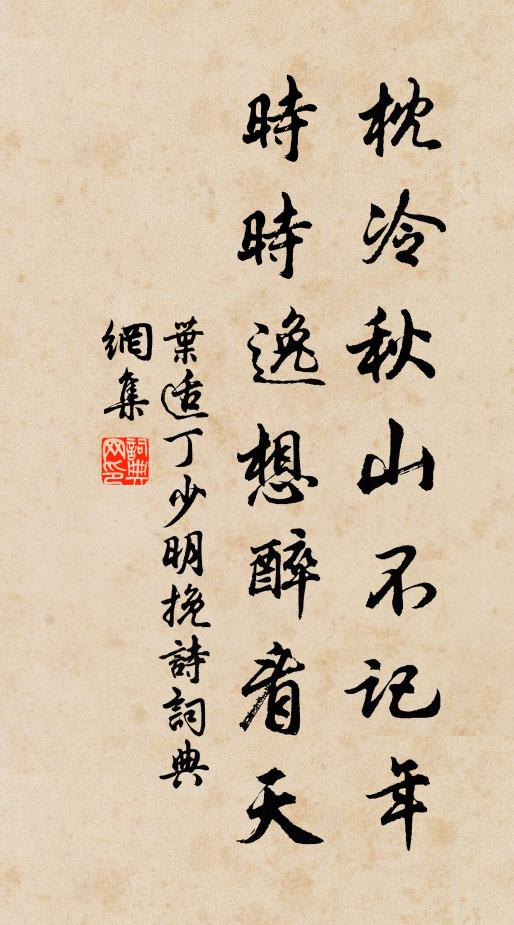 枕冷秋山不記年
時時逸想醉看天
葉适丁少明挽詩詞典
網集
詞典
网印